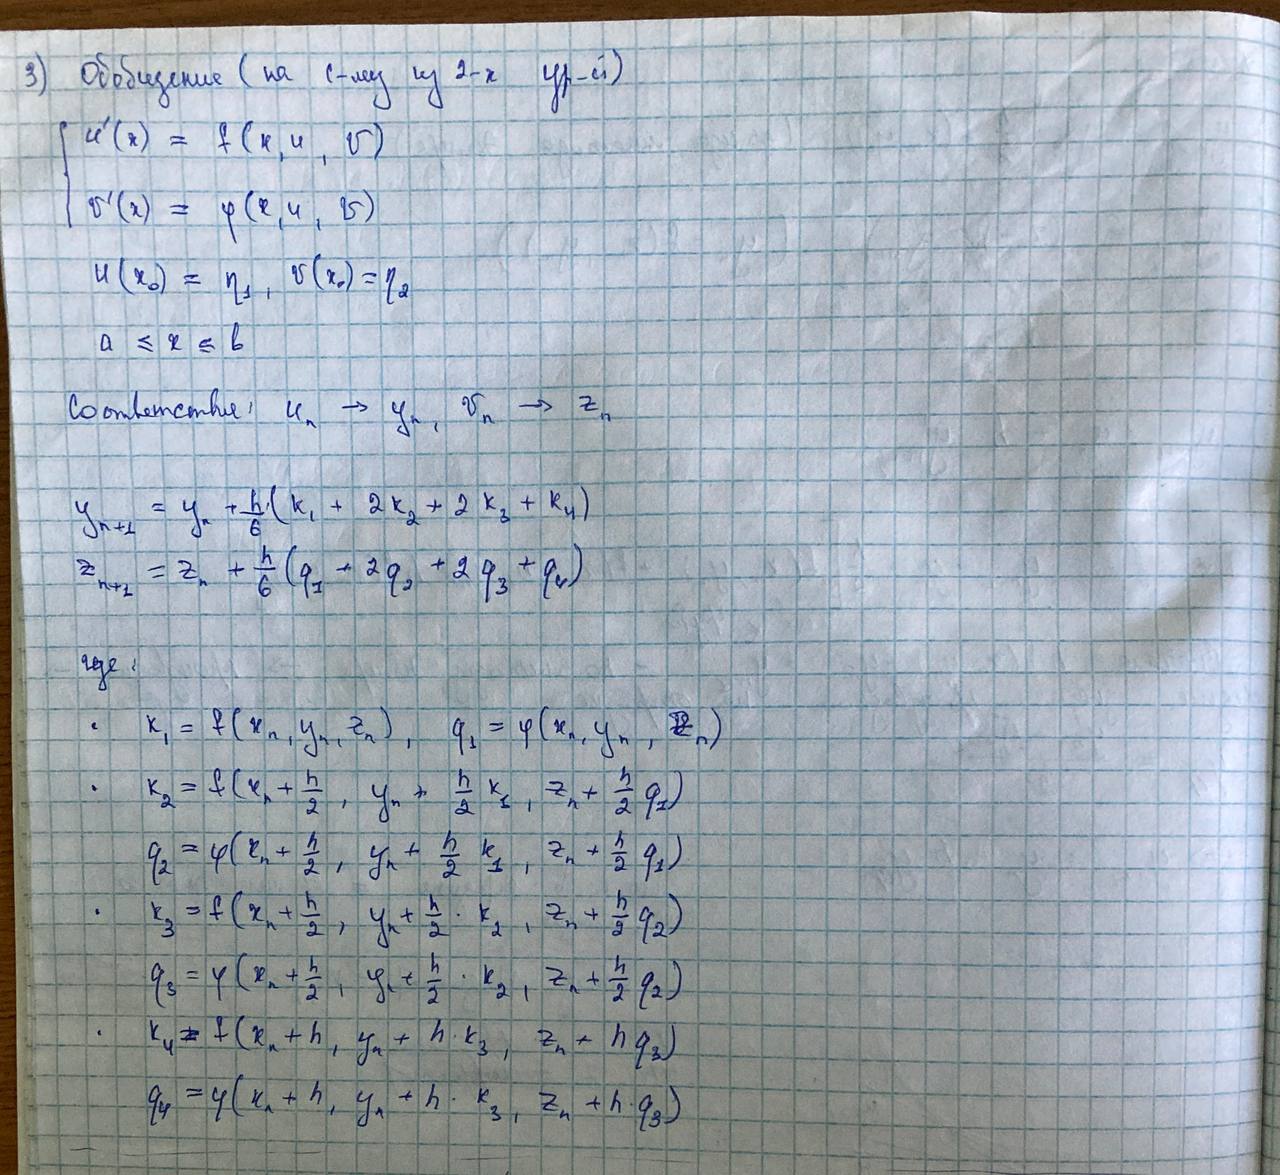 3) Обобщение (на с-му из 2-х ур-й)
u'(x) = f(x, u, v)
v'(x) = φ(x, u, v)
u(x₀) = η₁, v(x₀) = η₂
a ≤ x ≤ b
Соответствие: uₙ → yₙ, vₙ → zₙ
yₙ₊₁ = yₙ + h/6 (k₁ + 2k₂ + 2k₃ + k₄)
zₙ₊₁ = zₙ + h/6 (q₁ + 2q₂ + 2q₃ + q₄)
где:
· k₁ = f(xₙ, yₙ, zₙ), q₁ = φ(xₙ, yₙ, zₙ)
· k₂ = f(xₙ + h/2, yₙ + h/2 k₁, zₙ + h/2 q₁)
q₂ = φ(xₙ + h/2, yₙ + h/2 k₁, zₙ + h/2 q₁)
· k₃ = f(xₙ + h/2, yₙ + h/2 · k₂, zₙ + h/2 q₂)
q₃ = φ(xₙ + h/2, yₙ + h/2 · k₂, zₙ + h/2 q₂)
· k₄ = f(xₙ + h, yₙ + h · k₃, zₙ + h q₃)
q₄ = φ(xₙ + h, yₙ + h · k₃, zₙ + h · q₃)